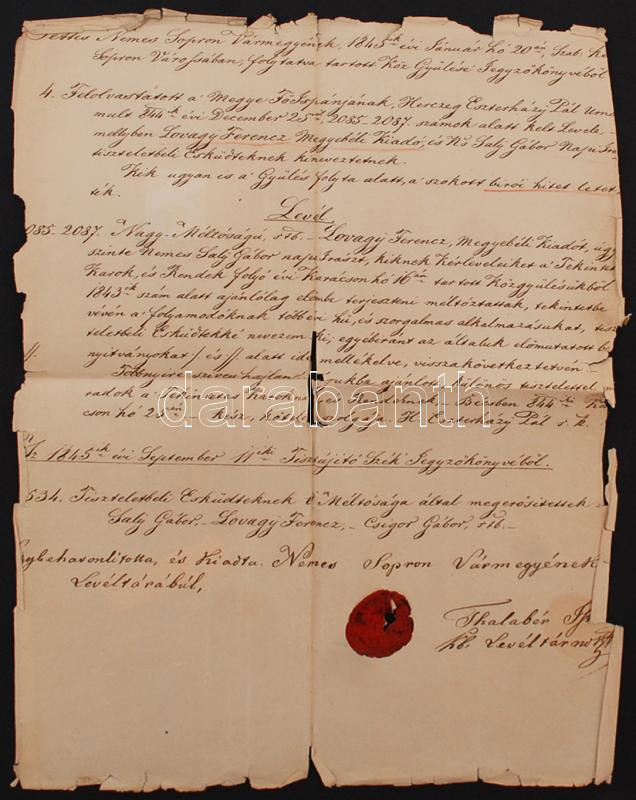 Tettes Nemes Sopron Vármegyének, 1845ik évi Január hó 20án Szab. Ki
Sopron Városában, folytatva tartott Köz Gyülési Jegyzőkönyvéből
4. Felolvastatott a' Megye Főispánjának, Herczeg Eszterházy Pál
mult 844ik évi December 25ről, 2085-2087. számok alatt kelt Levele,
mellyben Lovagy Ferencz Megyebéli Kiadó, és Ns Saly Gábor Napi
tiszteletbeli Esküdteknek kineveztetnek.
Kik ugyan is a' Gyülés folyta alatt, a' szokott birói hitet letet-
ték.
Levél
085-2087. Nagy-Méltóságú, stb. - Lovagy Ferencz, Megyebéli Kiadót, úgy
szinte Nemes Saly Gábor napi Iraszt, kiknek Kérleveleiket a' Tekintet
Karok, és Rendek folyó évi Karácson hó 16án tartott Közgyülésükből
1843ik szám alatt ajánlólag előmbe terjeszteni méltóztattak, tekintetbe
vévén a' folyamodóknak több évi hű, és szorgalmas alkalmazásukat, tisz
teletbeli Esküdtekké nevezem ki; egyeberánt az általuk előmutatott bi
//. nyitványokat /. és //. alatt ide mellékelve, visszakövetkeztetvén -
ajánlott különös tisztelettel
radok a' Tekintetes Karoknak Bécsben 844ki Ka
cson hó 25én kész, köteles szolgája H. Eszterházy Pál s. k.
1845ik évi September 11iki Tisztújító Szék Jegyzőkönyvéből.
534. Tiszteletbeli Esküdteknek ő Méltósága által megerősitettek
Saly Gábor, - Lovagy Ferencz, - Csigor Gábor, stb. -
ybehasonlitotta, és Kiadta Nemes Sopron Vármegyének
Levéltárából,
Thalabér
hb. Levéltárnok
darabanth